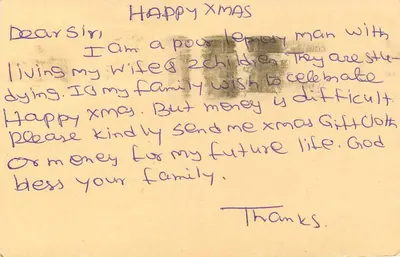 HAPPY XMAS
Dear Sir,
I am a poor lemony man with
living my wife & 2 children. They are stu-
dying. I & my family wish to celebrate
Happy xmas. But money is difficult
please kindly send me xmas Gift cloth
or money for my future life. God
bless your family.
Thanks.